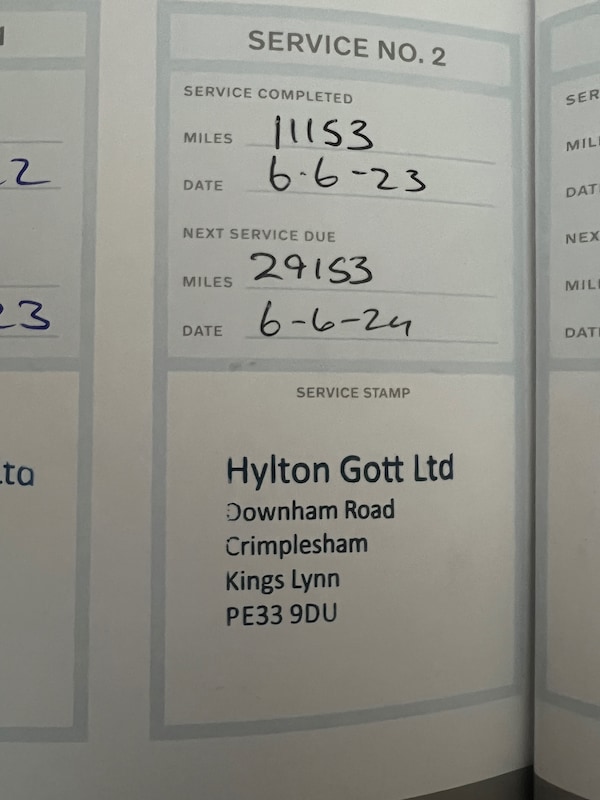 SERVICE NO. 2
SERVICE COMPLETED
MILES 11153
DATE 6.6-23
NEXT SERVICE DUE
MILES 29153
DATE 6-6-24
SERVICE STAMP
Hylton Gott Ltd
Downham Road
Crimplesham
Kings Lynn
PE33 9DU